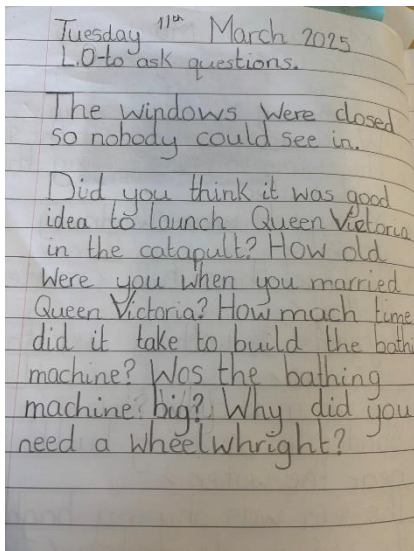 Tuesday 11th March 2025
L.O-to ask questions.
The windows were closed
so nobody could see in.
Did you think it was good
idea to launch Queen Victoria
in the catapult? How old
were you when you married
Queen Victoria? How much time
did it take to build the bathi
machine? Was the bathing
machine big? Why did you
need a wheelwhright?